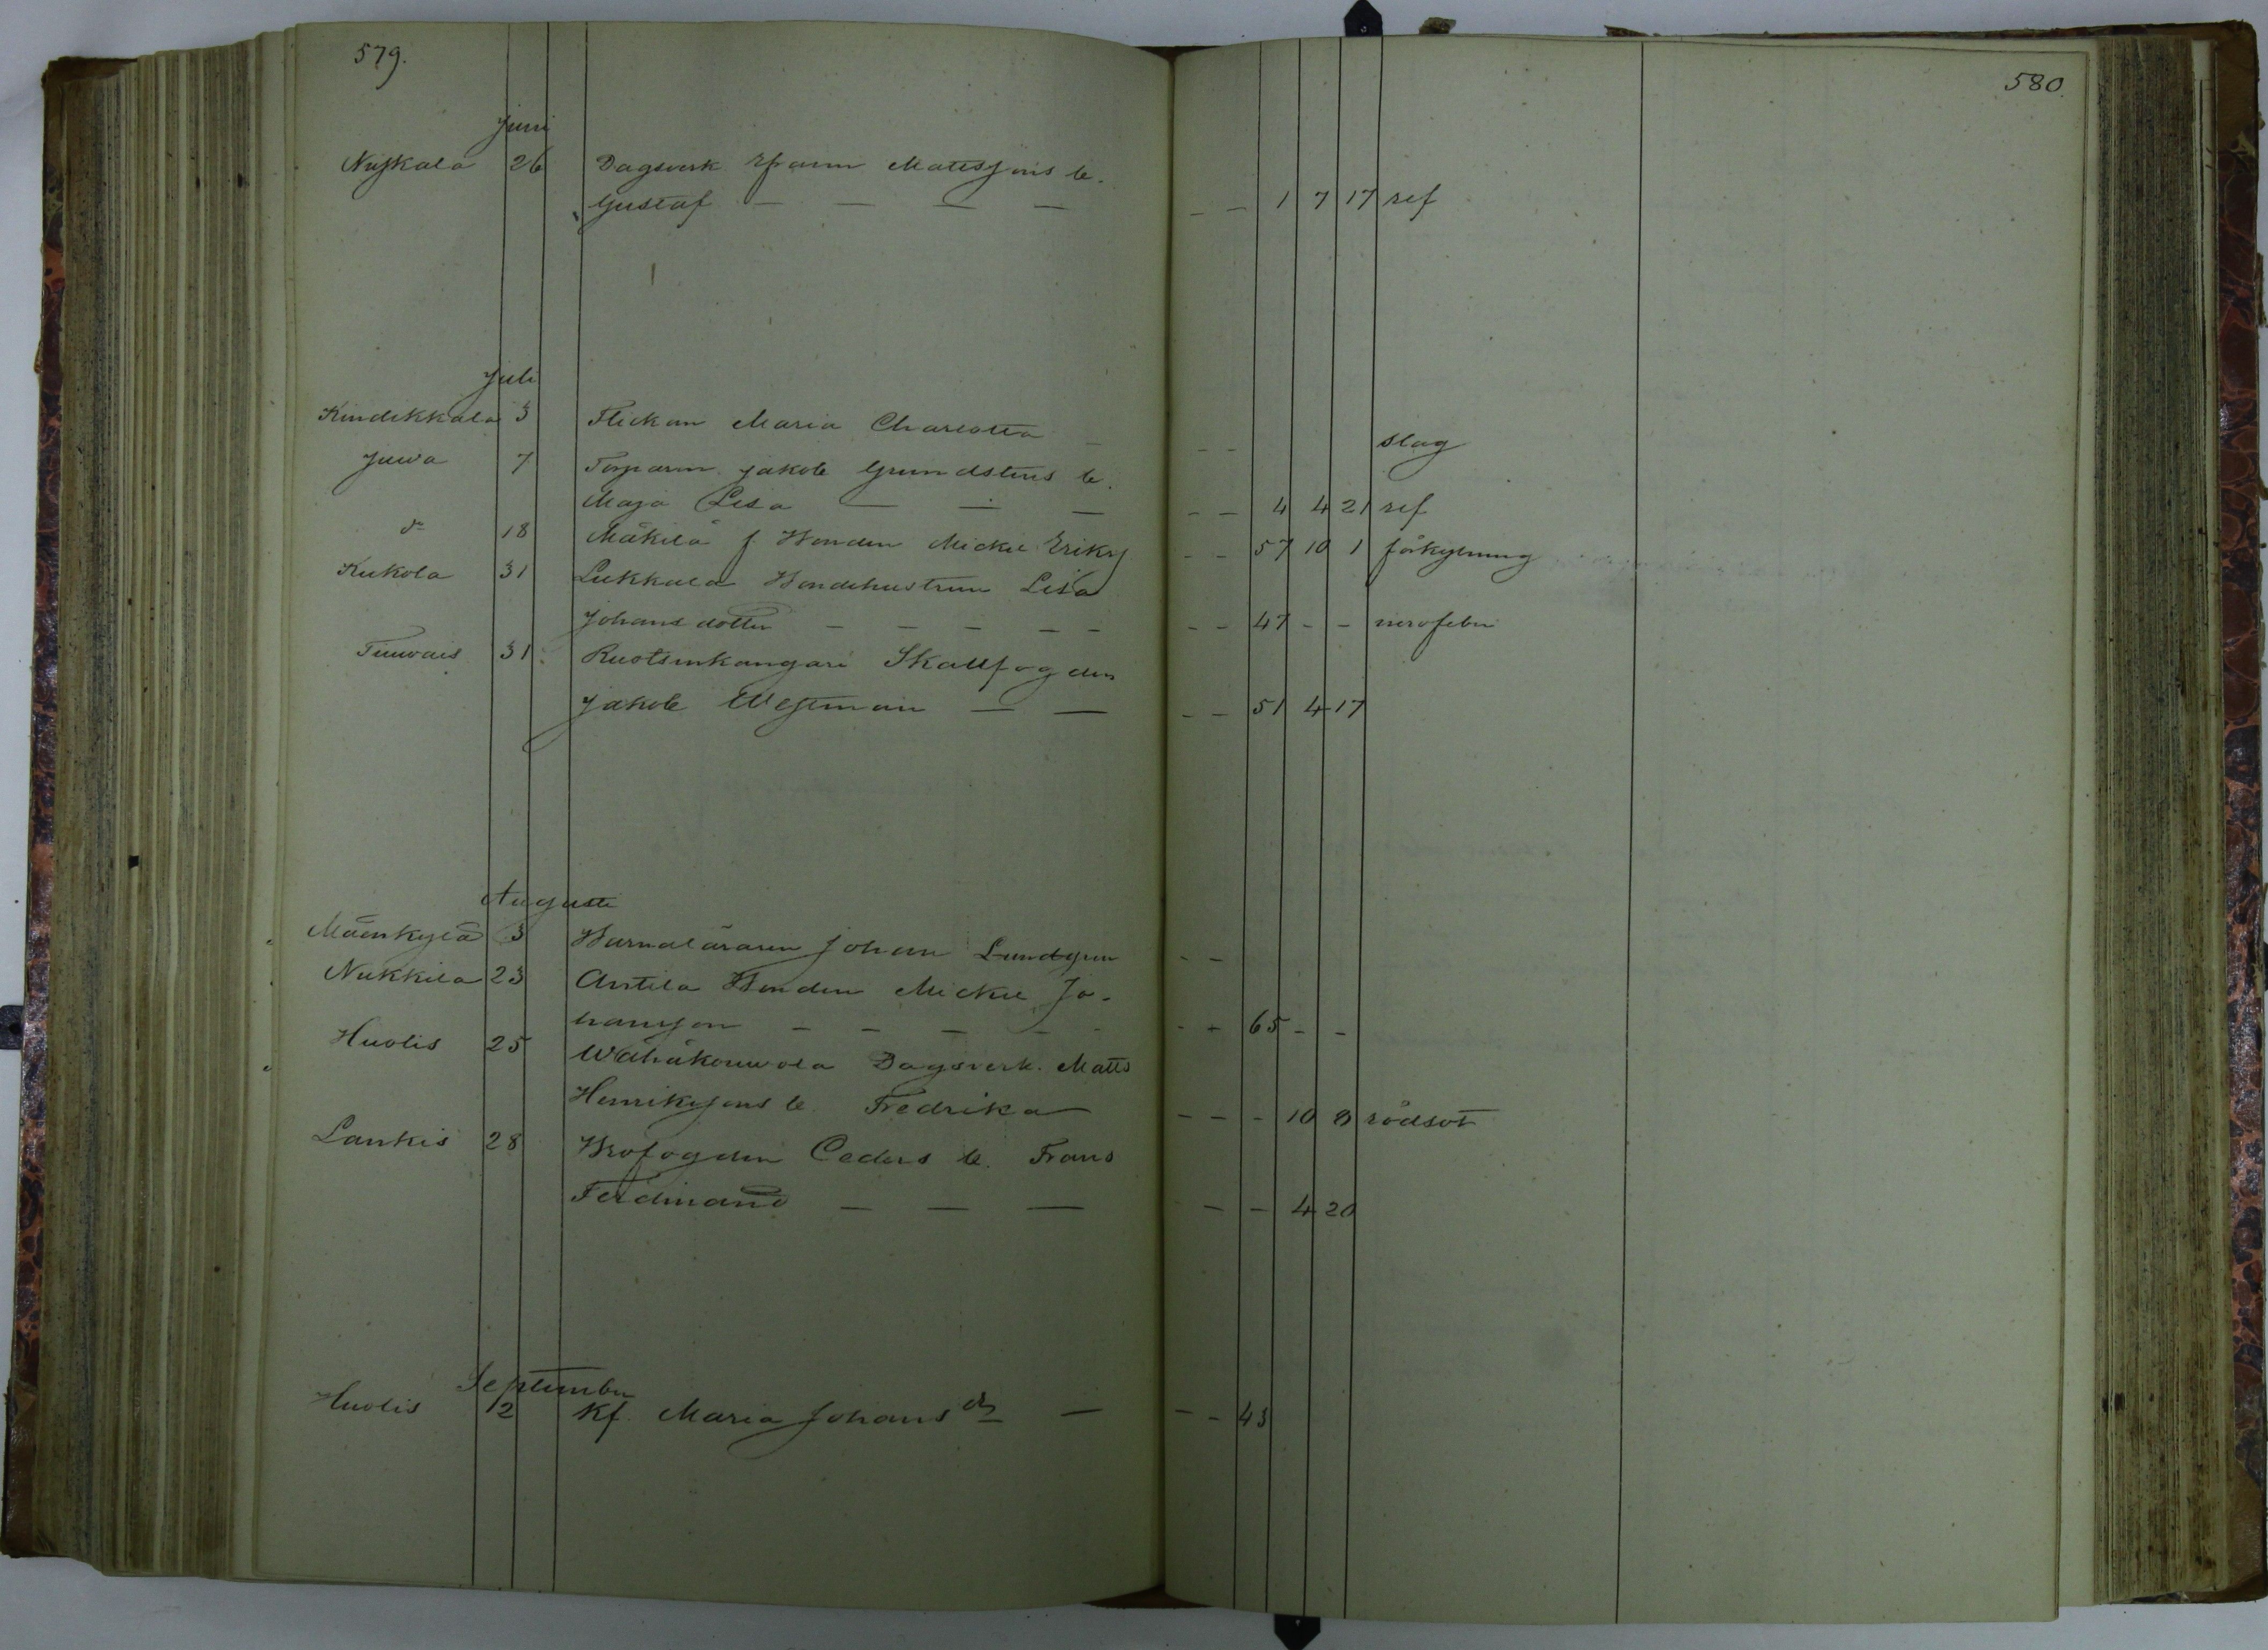 579.
580.
Juni
Nyskala 26 Dagsverk Efraim Matssons b.
Gustaf — — — — - - 1 7 17 ref
Juli
Kindikkala 3 Flickan Maria Charlotta - - - slag
Juwa 7 Torparen Jakob Grundstens b.
Maja Lisa — — — - - 4 4 21 ref
do 18 Mäkilä f Bonden Mickel Eriks - - 57 10 1 förkylning
Kukola 31 Lukkala Bondehustrun Lisa
Johansdotter - - - - - - - 47 - - nervfeber
Tuuvais 31. Ruotsinkangari Skallfogden
Jakob Westman — — - - 51 4 17
Augusti
Mäenkylä 3 Barnaläraren Johan Lundgren - -
Nukkila 23 Antila Bonden Mickel Jo-
hansson - - - - - - - 65 - -
Huolis 25 Wähäkouwola Dagsverk. Matts
Henrikssons b. Fredrika - - - 10 8 rödsot
Lankis 28 Brofogden Ceders b. Frans
Ferdinand — — — - - 4 20
September
Huolis 2 Kf. Maria Johansdr — - - 43